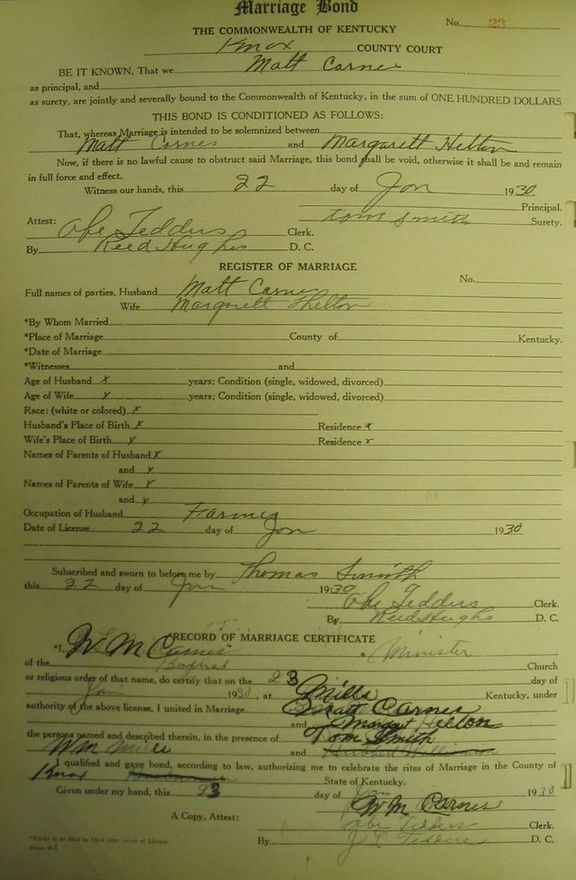 Marriage Bond
No. 23
THE COMMONWEALTH OF KENTUCKY
Knox COUNTY COURT
BE IT KNOWN, That we Matt Carnes
as principal, and
as surety, are jointly and severally bound to the Commonwealth of Kentucky, in the sum of ONE HUNDRED DOLLARS
THIS BOND IS CONDITIONED AS FOLLOWS:
That, whereas Marriage is intended to be solemnized between
Matt Carnes and Margarett Helton
Now, if there is no lawful cause to obstruct said Marriage, this bond shall be void, otherwise it shall be and remain
in full force and effect.
Witness our hands, this 22 day of Jan 1930
Principal.
Attest: Tom Smith Surety.
Obe Tedders Clerk.
By Reed Hughes D. C.
REGISTER OF MARRIAGE
No.
Full names of parties, Husband Matt Carnes
Wife Margarett Helton
*By Whom Married
*Place of Marriage County of Kentucky.
*Date of Marriage
*Witnesses and
Age of Husband x years; Condition (single, widowed, divorced)
Age of Wife x years; Condition (single, widowed, divorced)
Race: (white or colored) x
Husband's Place of Birth x Residence x
Wife's Place of Birth x Residence x
Names of Parents of Husband x
and x
Names of Parents of Wife x
and x
Occupation of Husband Farmer
Date of License 22 day of Jan 1930
Subscribed and sworn to before me by Thomas Smith
this 22 day of Jan 1930
Obe Tedders Clerk.
By Reed Hughes D. C.
RECORD OF MARRIAGE CERTIFICATE
*I, W M Carnes a Minister
of the Baptist Church
or religious order of that name, do certify that on the 23 day of
Jan 1930, at Mills Kentucky, under
authority of the above license, I united in Marriage Matt Carnes
and Margret Helton
the persons named and described therein, in the presence of Tom Smith
Wm Mills and
I qualified and gave bond, according to law, authorizing me to celebrate the rites of Marriage in the County of
Knox State of Kentucky.
Given under my hand, this 23 day of Jan 1930
W M Carnes
A Copy, Attest: Obe Tedders Clerk.
By Tedders D. C.